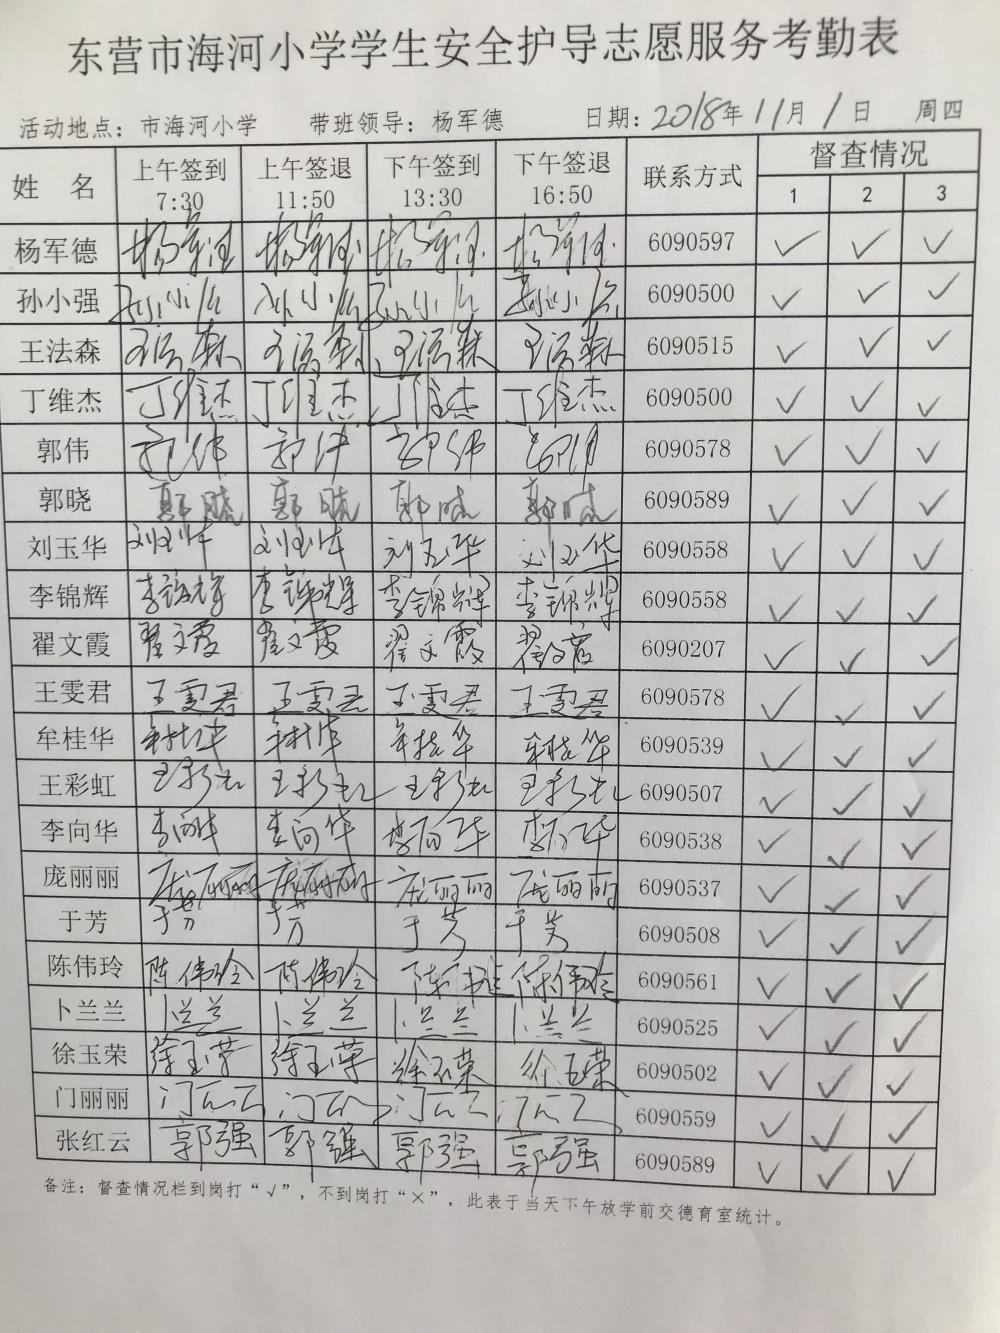 东营市海河小学学生安全护导志愿服务考勤表
活动地点：市海河小学 带班领导：杨军德 日期：2018年11月1日 周四
姓 名 上午签到 7:30 上午签退 11:50 下午签到 13:30 下午签退 16:50 联系方式 督查情况 1 2 3
杨军德 杨军德 杨军德 杨军德 杨军德 6090597 ✓ ✓ ✓
孙小强 孙小强 孙小强 孙小强 孙小强 6090500 ✓ ✓ ✓
王法森 王法森 王法森 王法森 王法森 6090515 ✓ ✓ ✓
丁维杰 丁维杰 丁维杰 丁维杰 丁维杰 6090500 ✓ ✓ ✓
郭伟 郭伟 郭伟 郭伟 郭伟 6090578 ✓ ✓ ✓
郭晓 郭晓 郭晓 郭晓 郭晓 6090589 ✓ ✓ ✓
刘玉华 刘玉华 刘玉华 刘玉华 刘玉华 6090558 ✓ ✓ ✓
李锦辉 李锦辉 李锦辉 李锦辉 李锦辉 6090558 ✓ ✓ ✓
翟文霞 翟文霞 翟文霞 翟文霞 翟文霞 6090207 ✓ ✓ ✓
王雯君 王雯君 王雯君 王雯君 王雯君 6090578 ✓ ✓ ✓
牟桂华 牟桂华 牟桂华 牟桂华 牟桂华 6090539 ✓ ✓ ✓
王彩虹 王彩虹 王彩虹 王彩虹 王彩虹 6090507 ✓ ✓ ✓
李向华 李向华 李向华 李向华 李向华 6090538 ✓ ✓ ✓
庞丽丽 庞丽丽 庞丽丽 庞丽丽 庞丽丽 6090537 ✓ ✓ ✓
于芳 于芳 于芳 于芳 于芳 6090508 ✓ ✓ ✓
陈伟玲 陈伟玲 陈伟玲 陈伟玲 陈伟玲 6090561 ✓ ✓ ✓
卜兰兰 卜兰兰 卜兰兰 卜兰兰 卜兰兰 6090525 ✓ ✓ ✓
徐玉荣 徐玉荣 徐玉荣 徐玉荣 徐玉荣 6090502 ✓ ✓ ✓
门丽丽 门丽丽 门丽丽 门丽丽 门丽丽 6090559 ✓ ✓ ✓
张红云 郭强 郭强 郭强 郭强 6090589 ✓ ✓ ✓
备注：督查情况栏到岗打“√”，不到岗打“×”，此表于当天下午放学前交德育室统计。